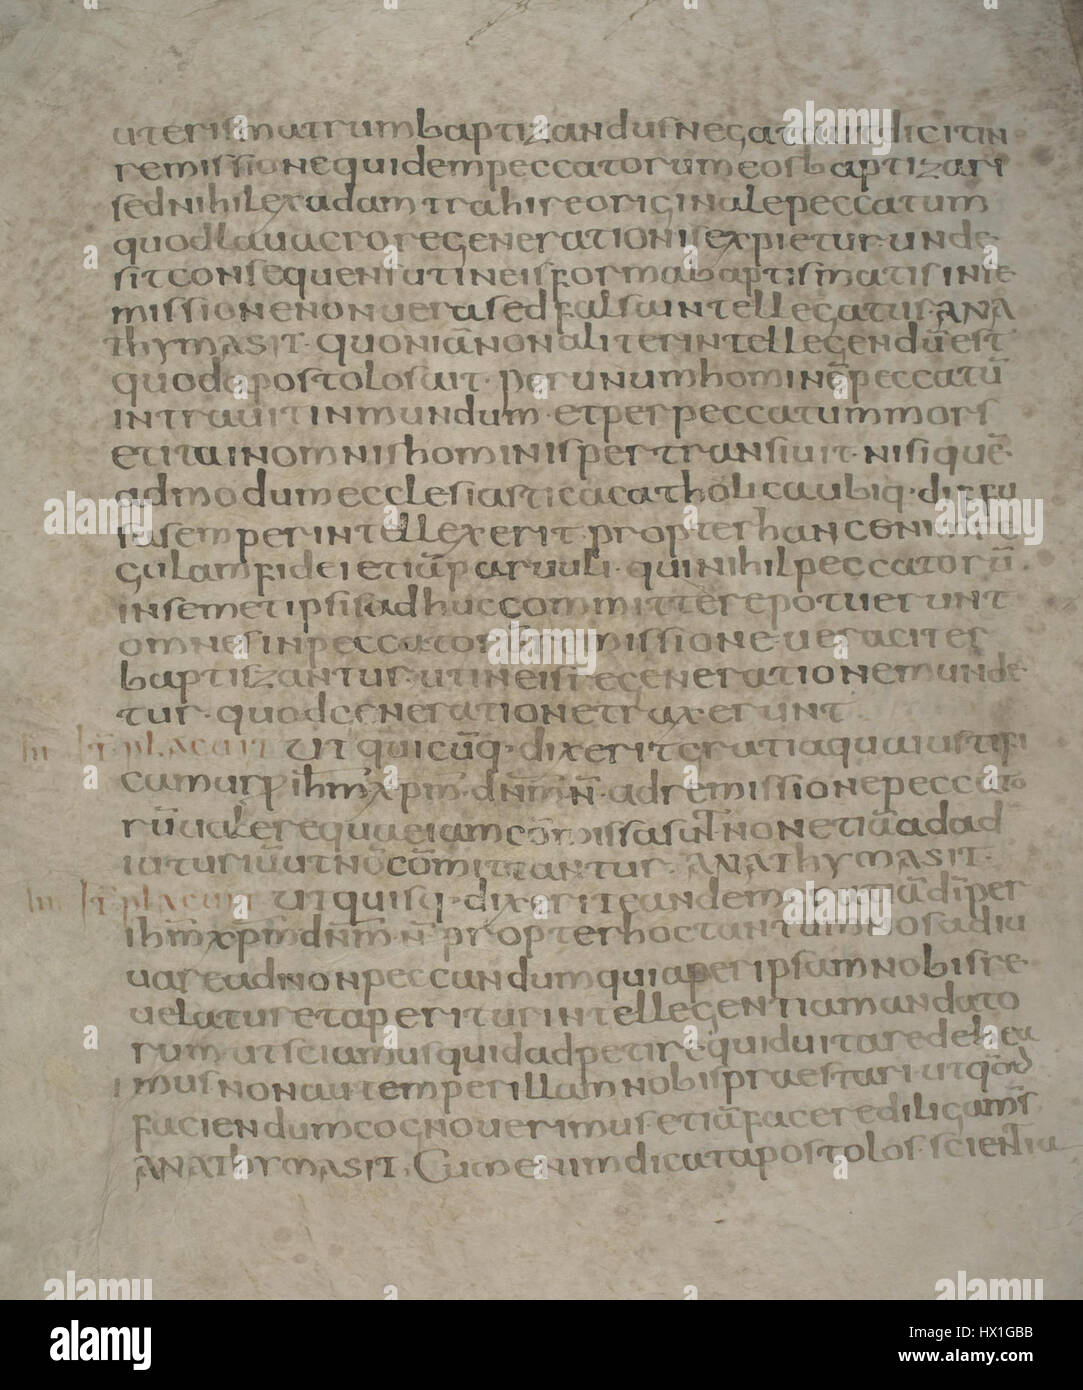 uterismatrumbaptizandusnegat autdicitin
remissionequidempeccatorumeosbaptizari
sednihilexadamtrahireoriginalepeccatum
quodlauacroregenerationisexpietur·unde
sitconsequensutineisformabaptismatisinre
missionenonuerasedfalsaintellegatur·ANA
THYMASIT·quoniānonaliterintellegendūest
quodapostolosait·perunumhominēpeccatū
intrauitinmundum·etperpeccatummors
etitainomnishominispertransiuit·nisiquē
admodumecclesiasticacatholicaubiq·diffu
sasemperintellexerit·propterhanc
gulamfidei etiāparuuli·quinihilpeccatorū
insemetipsisadhuccommittērepotuerunt
omnesinpeccator missione·ueraciter
baptizantur·utineisregenerationemunde
tur·quodgenerationetraxerunt
IT placuit UTquicūq·dixeritgratiaquaiustifi
camurp̄ihm̄xpm̄·dnm̄·n̄·adremissionepeccato
rūualerequaeiamcōmissasunt·nonetiāadad
iuturiūutnōcōmittantur·ANATHYMASIT·
IT placuit UTquisq·dixeriteandem gratiād̄iper
ihm̄xpm̄dnm̄·n̄·propterhoctantumnosadiu
uareadnonpeccandumquiaperipsamnobisre
ueLaturetaperiturintellegentiamandato
rumutsciamusquidadpetirequiduitaredebea
musnonautemperillamnobispraestari·utqōd
faciendumcognouerimusetiāfacerediligam̄s
ANATHYMASIT·Cumenimdicatapostolos·scientia
a
alamy
alamy
Image ID: HX1GBB
www.alamy.com